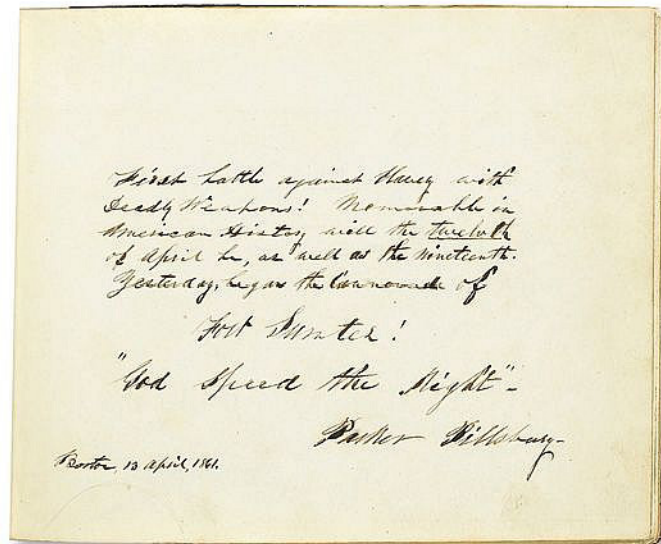 First battle against Slavery with
Deadly Weapons! Memorable in
American History will the twelvth
of April be, as well as the Nineteenth.
Yesterday, began the Cannonade of
Fort Sumter!
"God speed the Right"-
Parker Pillsbury-
Boston, 13 April, 1861.